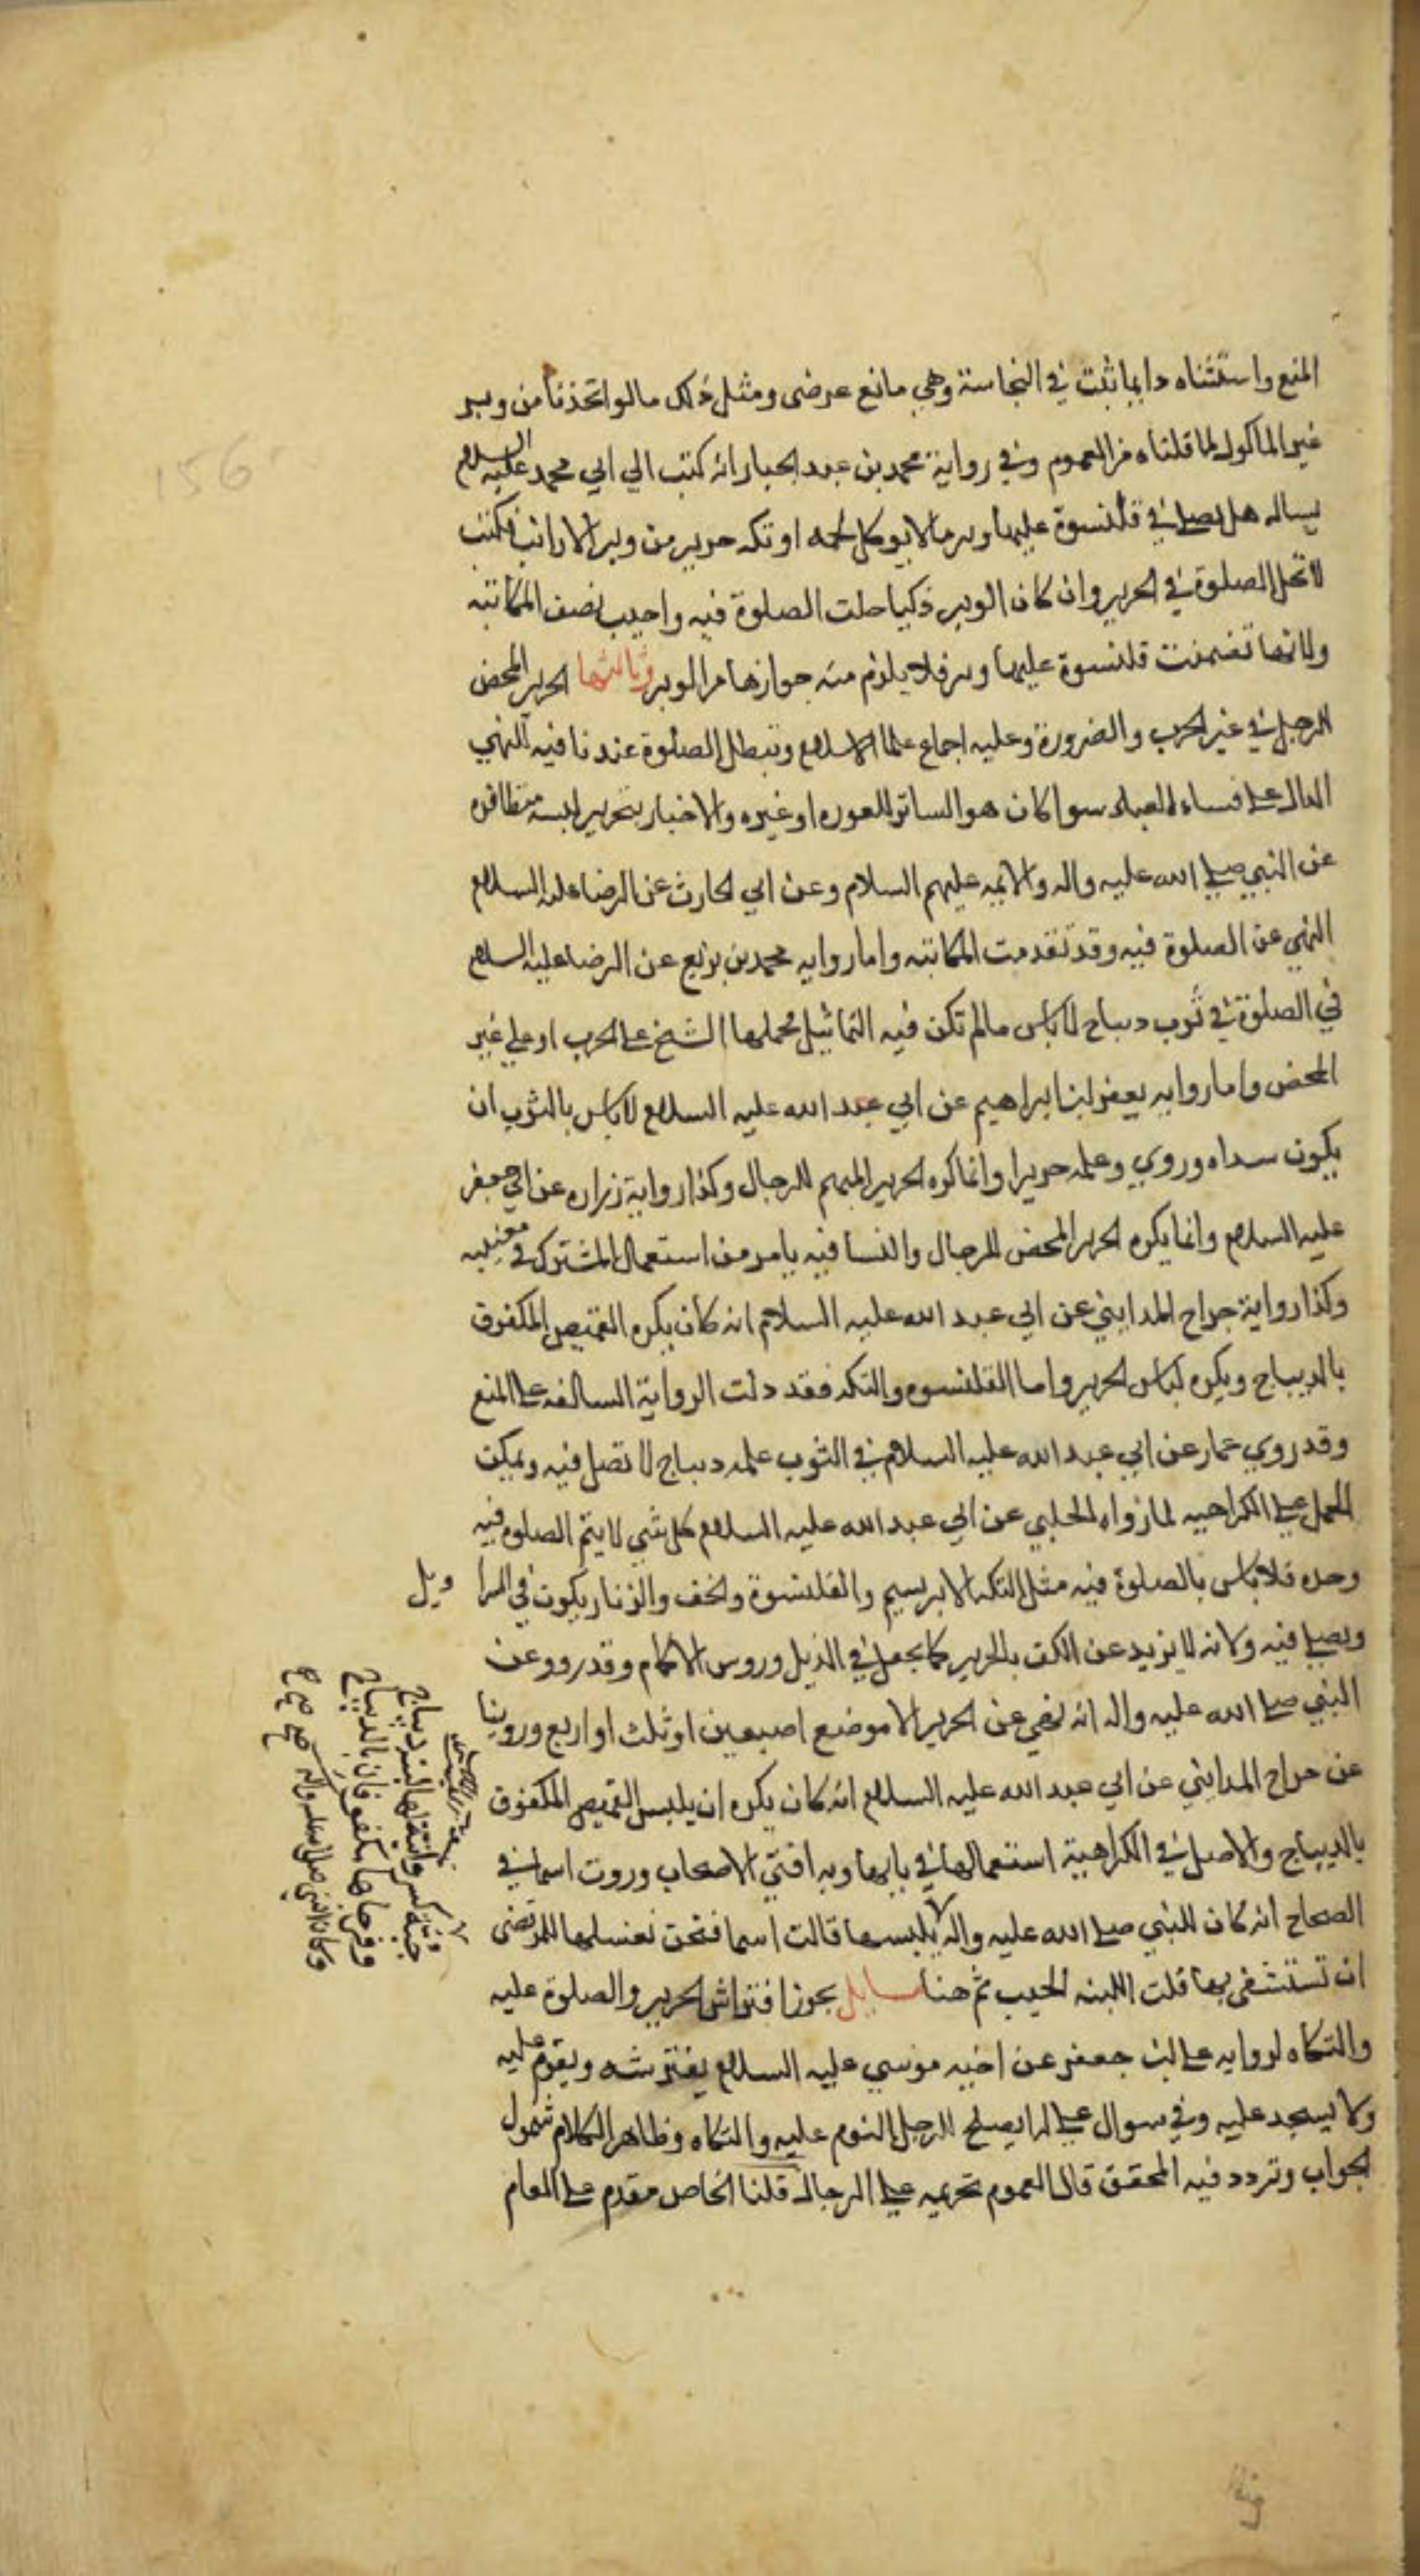 المنع واستثناه دايما ثبت في النجاسة وهي مانع عرضي ومثل ذلك ما لو اتخذتا من وبر
غير الماكول لما قلناه من العموم وفي رواية محمد بن عبد الجبار انه كتب الي ابي محمد عليه السلام
يساله هل يصلي في قلنسوة عليها وبر ما لا يوكل لحمه او تكه حرير من وبر الارانب فكتب
لا تحل الصلوة في الحرير وان كان الوبر ذكيا حلت الصلوة فيه واجيب بضعف المكاتبه
ولانها تضمنت قلنسوة عليها وبر فلا يلزم منه جوازها من الوبر وثالثها الحرير المحض
للرجل في غير الحرب والضرورة وعليه اجماع علما الاسلام وتبطل الصلوة عندنا فيه للنهي
الدال علي فساد العباده سوا كان هو الساتر للعوره او غيره والاخبار بتحريم لبسه متظافره
عن النبي صلي الله عليه واله والايمه عليهم السلام وعن ابي الحارث عن الرضا عليه السلام
النهي عن الصلوة فيه وقد تقدمت المكاتبه واما روايه محمد بن بزيع عن الرضا عليه السلام
في الصلوة في ثوب ديباج لا باس ما لم تكن فيه التماثيل فحملها الشيخ علي الحرب او علي غير
المحض واما روايه يوسف بن ابراهيم عن ابي عبد الله عليه السلام لا باس بالثوب ان
يكون سداه وروي وعلمه حريرا وانما كره الحرير المبهم للرجال وكذا رواية زراره عن ابي جعفر
عليه السلام وانما يكره الحرير المحض للرجال والنسا فيه يامر من استعمال المشترك في معنييه
وكذا رواية جراح المدايني عن ابي عبد الله عليه السلام انه كان يكره القميص المكفوف
بالديباج ويكره لباس الحرير واما القلنسوه والتكه فقد دلت الرواية السالفه علي المنع
وقد روي عمار عن ابي عبد الله عليه السلام في الثوب علمه ديباج لا تصل فيه ويمكن
الحمل علي الكراهيه لما رواه الحلبي عن ابي عبد الله عليه السلام كل شي لا يتم الصلوه فيه
وحده فلا باس بالصلوة فيه مثل التكه الابريسم والقلنسوة والخف والزنار يكون في السراويل
ويصلي فيه ولانه لا يزيد عن الكف بالحرير كما يجعل في الذيل وروس الاكمام وقد رووعن
النبي صلي الله عليه واله انه نهي عن الحرير الا موضع اصبعين او ثلث او اربع وروينا
عن جراح المدايني عن ابي عبد الله عليه السلام انه كان يكره ان يلبس القميص المكفوف
بالديباج والاصل في الكراهية استعمالها في بابها وبه افتي الاصحاب وروت اسما في
الصحاح انه كان للنبي صلي الله عليه واله يلبسها قالت اسما فنحن نغسلها للمرضى
ان تستشفى بها قلت اللبنه الجيب ثم هنا مسايل يجوز افتراش الحرير والصلوة عليه
والتكاه لروايه علي بن جعفر عن اخيه موسي عليه السلام يفترشه ويقوم عليه
ولا يسجد عليه وفي سوال علي له ايصلح للرجل النوم عليه والتكاه وظاهر الكلام شمول
الجواب وتردد فيه المحقق قال لعموم تحريمه علي الرجال قلنا الخاص مقدم علي العام
جبة كسروانية لها لبنة ديباج
وفرجاها مكفوفان بالديباج
وكان النبي صلي الله عليه واله صح صح صح
156